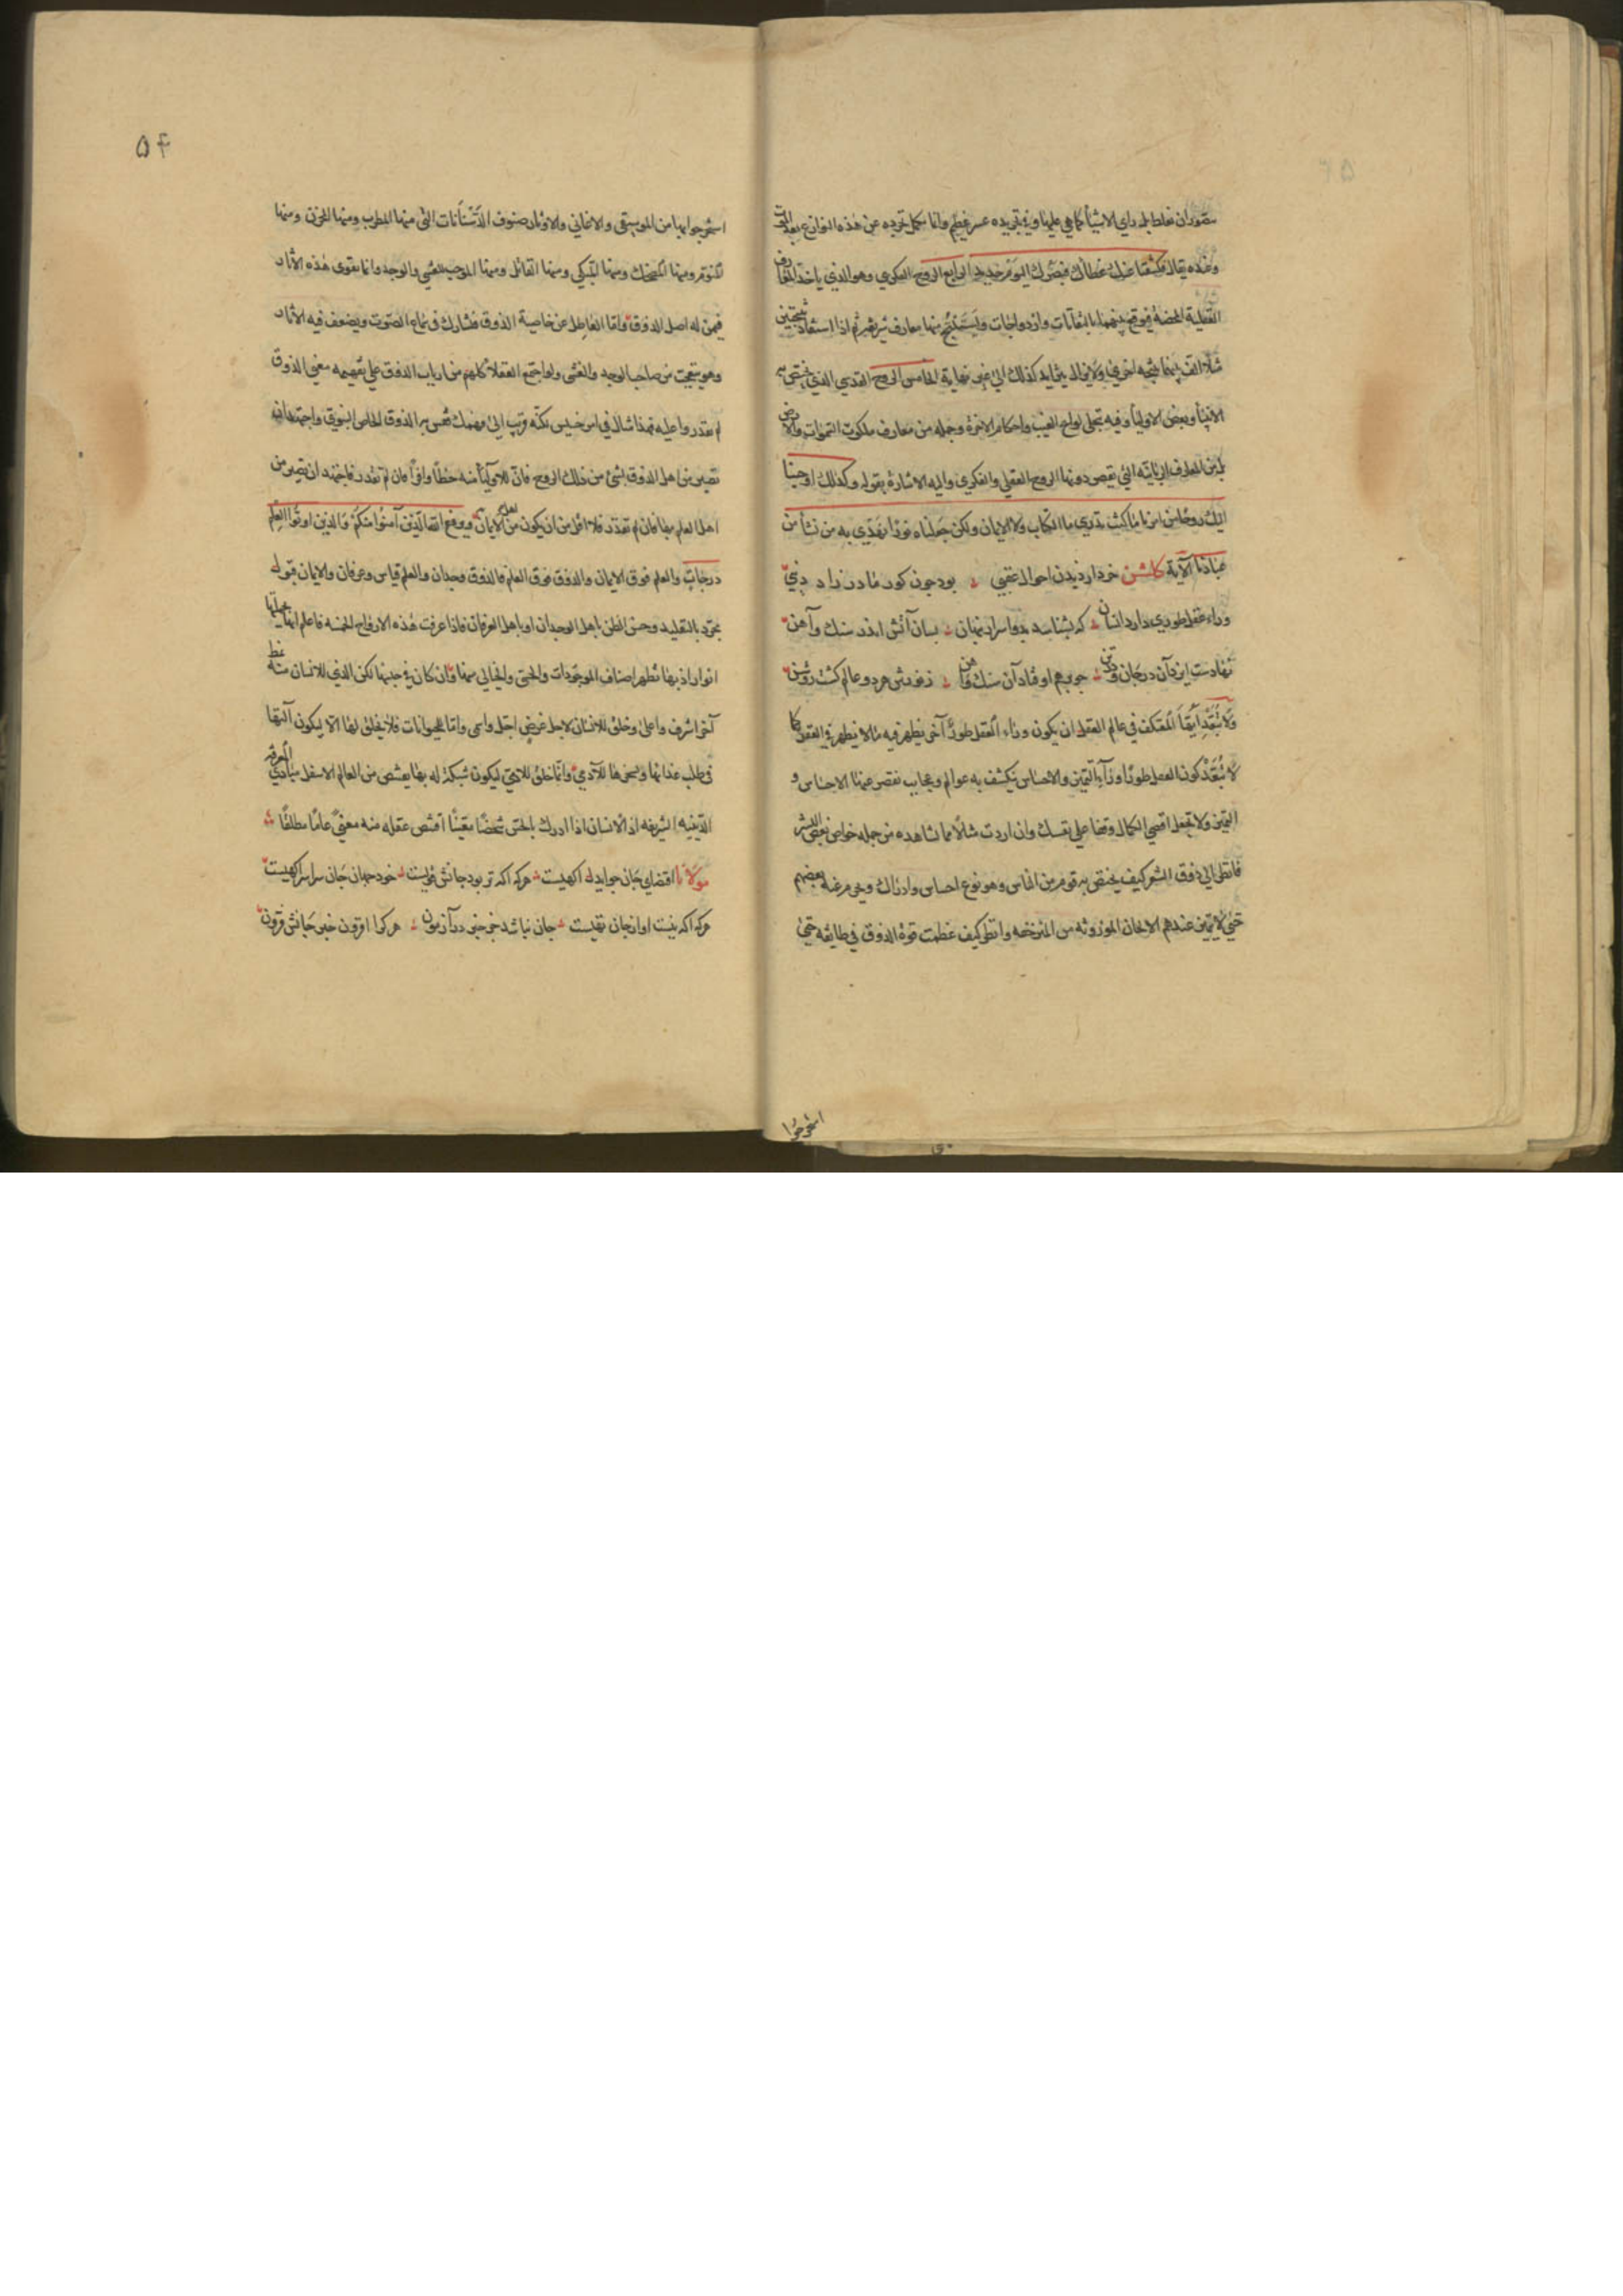 يتصور ان يغلط بل راي الاشيأ كما هي عليها وفي تجريده عسر عظيم وانما يكمل تجرده عن هذه النوازع بعد الموت
وعنده يقال فكشفنا عنك غطآءك فبصرك اليوم حديد الرابع الروح الفكري وهو الذي ياخذ المعارف
العقلية المحضة فيوقع بينهما تاليفات وازدواجات ويستنتج منها معارف شريفة ثم اذا استفاد نتيجتين
مثلا الف بينهما نتيجه اخري ولا يزال يتزايد كذلك الي غير نهاية الخامس الروح القدسي الذي يختص به
الانبيأ وبعض الاوليأ وفيه تتجلي لوايح الغيب واحكام الاخرة وجمله من معارف ملكوت السموات والارض
بل من المعارف الربانيه التي يقصر دونها الروح العقلي والفكري واليه الاشارة بقوله وكذلك اوحينا
اليك روحا من امرنا ما كنت تدري ما الكتاب ولا الايمان ولكن جعلناه نورا نهدي به من نشأ من
عبادنا الآية كلشن خرد از ديدن احوال عقبي بود چون كور مادر زاد دنيي
وراء عقل طوري دارد انسان كه بشناسد بدو اسرار پنهان بسان آتش اندر سنك وآهن
نهادست ايزد آن در جان ودر تن چو بر هم اوفتاد آن سنك وآهن ز نورش هر دو عالم كشت روشن
ولا تبعد ايها المعتكف في عالم العقل ان يكون وراء العقل طور آخر يظهر فيه ما لا يظهر في العقل كما
لا تبعد كون العقل طورا ورآء التميز والاحساس يكشف به عوالم وعجايب تقصر عنها الاحساس و
التميز ولا تجعل اقصي الكمال وقفا علي نفسك وان اردت مثالا مما تشاهده من جمله خواص بعض البشر
فانظر الي ذوق الشعر كيف يختص به قوم من الناس وهو نوع احساس وادراك ويحرم عنه بعضهم
حتي لا يتميز عندهم الالحان الموزونه من المنزحفه وانظر كيف عظمت قوة الذوق في طايفه حتي
استخرجوا
۵۴
استخرجوا بها من الموسيقي والاغاني والاوتار صنوف الدستانات التي منها المطرب ومنها المحزن ومنها
المنوم ومنها المضحك ومنها المبكي ومنها القاتل ومنها الموجب للغشي والوجد وانما يقوي هذه الاثار
فيمن له اصل الذوق واما العاطل عن خاصية الذوق فيشارك في سماع الصوت ويضعف فيه الاثار
وهو يتعجب من صاحب الوجد والغشي ولو اجتمع العقلاء كلهم من ارباب الذوق علي تفهيمه معني الذوق
لم يقدروا عليه فهذا مثال في امر خسيس لكنه قريب الي فهمك فقس به الذوق الخاص النبوي واجتهد ان
تصير من اهل الذوق بشئ من ذلك الروح فان للاوليأ منه حظا وافرا فان لم تقدر فاجتهد ان تصير من
اهل العلم بها فان لم تقدر فلا اقل من ان يكون من اهل الايمان ويرفع الله الذين آمنوا منكم والذين اوتوا العلم
درجات والعلم فوق الايمان والذوق فوق العلم فالذوق وجدان والعلم قياس وعرفان والايمان قبول
مجرد بالتقليد وحسن الظن باهل الوجدان او باهل العرفان فاذا عرفت هذه الارواح الخمسه فاعلم انها بجملتها
انوار اذ بها تظهر اصناف الموجودات والحسي والخيالي منها وان كان في جنسها لكن الذي للانسان منه نمط
آخر اشرف واعلي وخلق للانسان لاجل غرض اجل واسمي واما الحيوانات فلم يخلق لها الا ليكون آلتها
في طلب غذائها وتسخرها للآدمي وانما خلق للادمي ليكون شبكة له بها يقتنص من العالم الاسفل مبادي المعرفة
الدينيه الشريفه اذ الانسان اذا ادرك بالحس شخصا معينا اقتنص عقله منه معني عاما مطلقا
مولانا اقتضاي جان چو ايدل آكهيست هر كه آكه تر بود جانش قويست خود جهان جان سراسر آكهيست
هر كه آكه نيست او از جان تهيست جان نباشد جز خبر در آزمون هر كرا افزون خبر جانش فزون